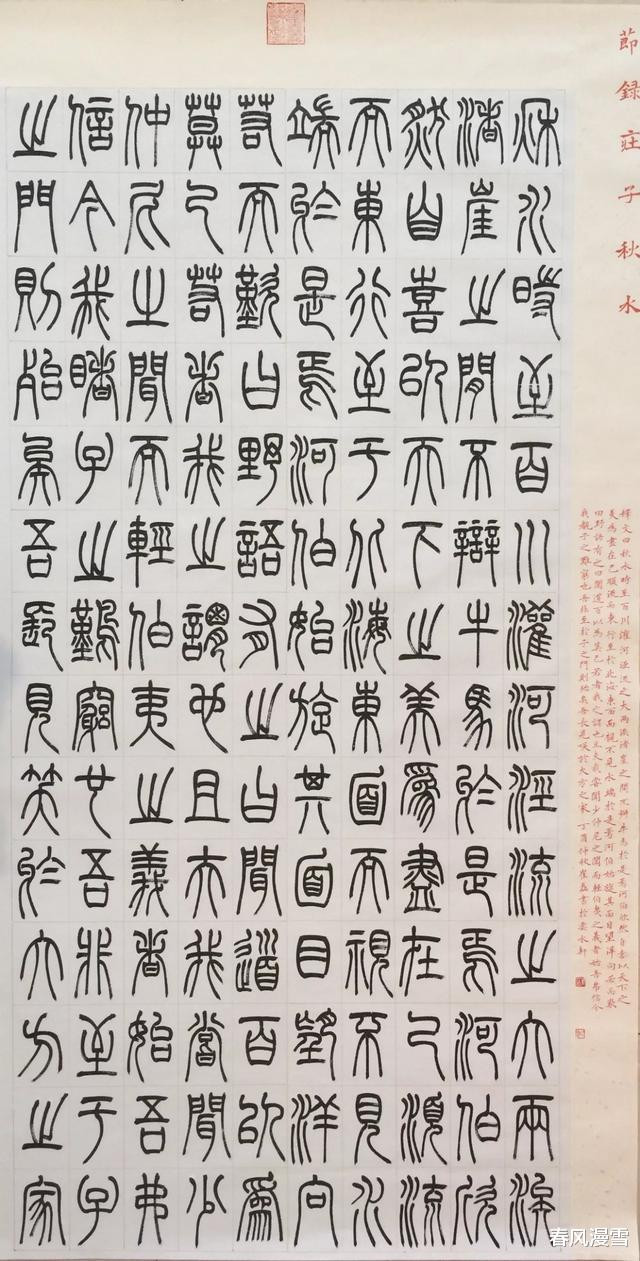 節錄莊子秋水
釋文曰秋水時至百川灌河涇流之大兩涘渚崖之間不辨牛馬於是焉河伯欣然自喜以天下之
美為盡在己順流而東行至於北海東面而視不見水端於是焉河伯始旋其面目望洋向若而歎
曰野語有之曰聞道百以為莫己若者我之謂也且夫我嘗聞少仲尼之聞而輕伯夷之義者始吾弗信今
我睹子之難窮也吾非至於子之門則殆矣吾長見笑於大方之家 丁酉仲秋崔 書於 水軒
秋水時至百川灌河涇流之大兩涘
渚崖之間不辯牛馬於是焉河伯欣
然自喜以天下之美為盡在己順流
而東行至于北海東面而視不見水
端於是焉河伯始旋其面目望洋向
若而歎曰野語有之曰聞道百以為
莫己若者我之謂也且夫我嘗聞少
仲尼之聞而輕伯夷之義者始吾弗
信今我睹子之難窮也吾非至于子
之門則殆矣吾長見笑於大方之家
春风漫雪